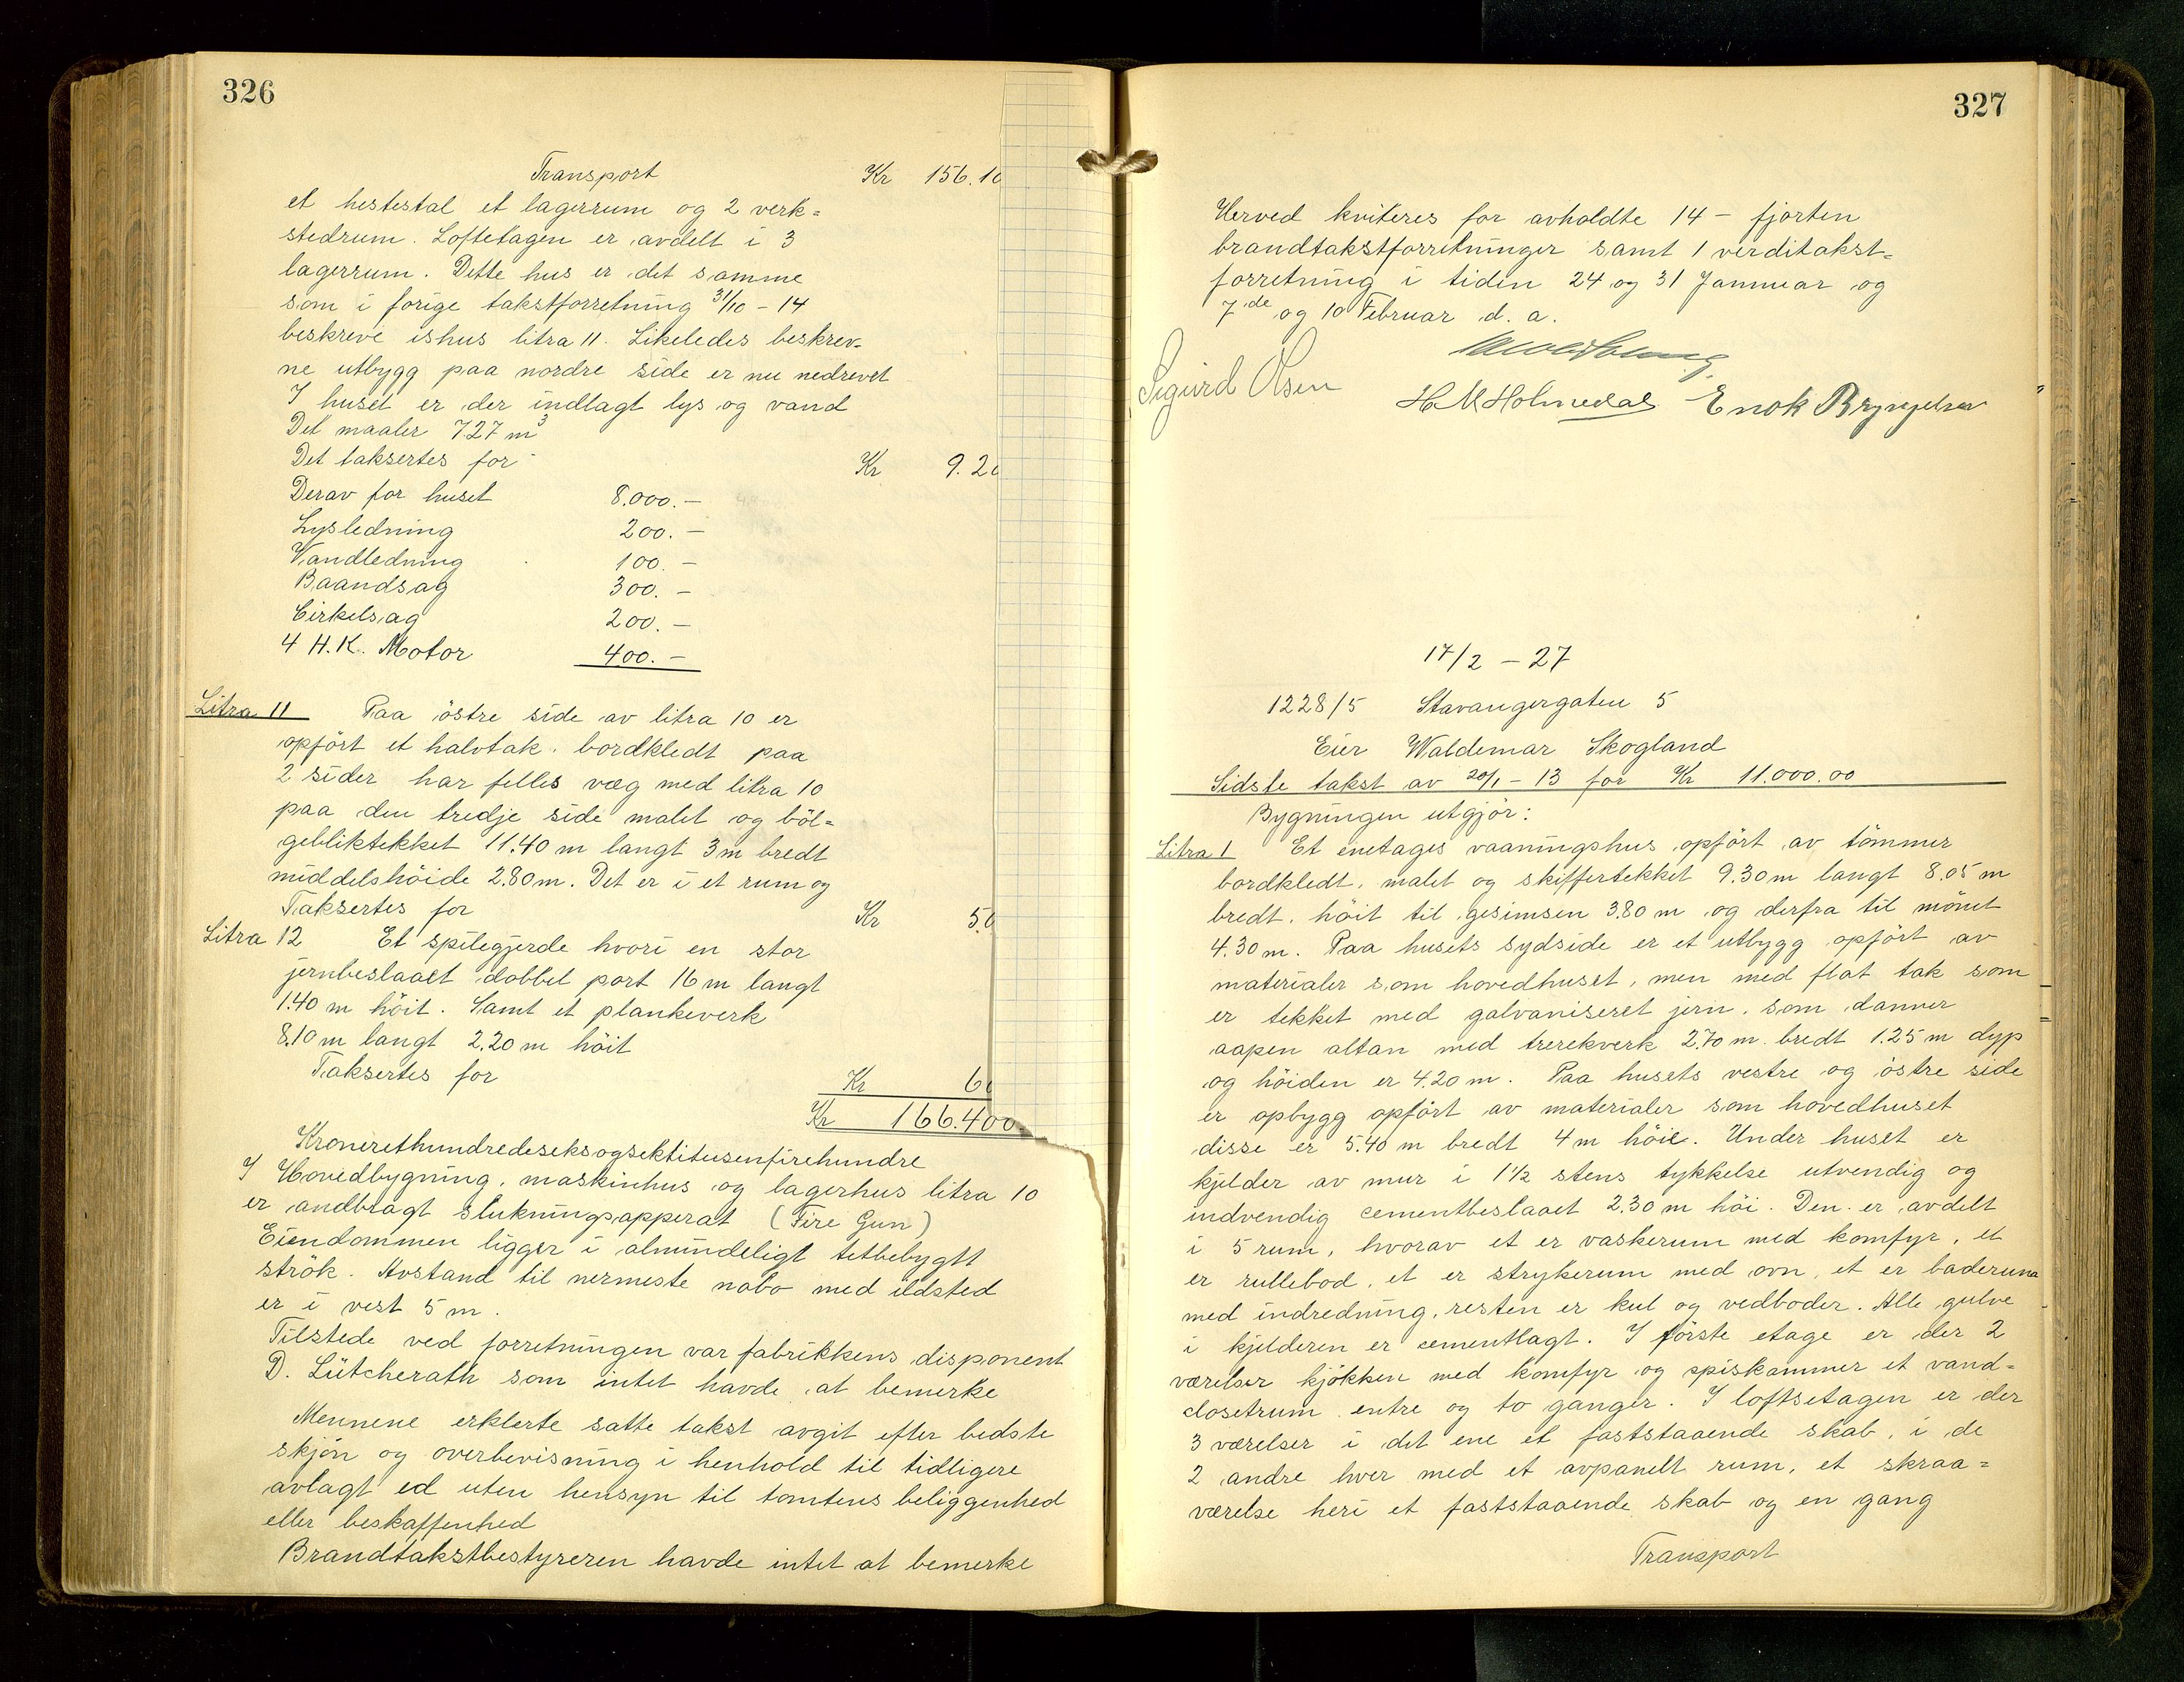 326
Transport Kr 156.10
et hestestal et lagerrum og 2 verk=
stedrum. Loftetagen er avdelt i 3
lagerrum. Dette hus er det samme
som i forige takstforretning 31/10 - 14
beskreve ishus litra 11. Likeledes beskrev-
ne utbygg paa nordre side er nu nedrevet
I huset er der indlagt lys og vand
Det maaler 727 m3
Det taksertes for Kr 9.20
Derav for huset 8.000.-
Lysledning 200.-
Vandledning 100.-
Baandsag 300.-
Cirkelsag 200.-
4 H.K. Motor 400.-
Litra 11 Paa östre side av litra 10 er
opfört et halvtak, bordkledt paa
2 sider har felles væg med litra 10
paa den tredje side malet og böl=
gebliktekket 11.40 m langt 3 m bredt
middelshöide 2.80 m. Det er i et rum og
Taksertes for Kr 50
Litra 12 Et spilegjerde hvori en stor
jernbeslaaet dobbel port 16 m langt
1.40 m höit. Samt et plankeverk
8.10 m langt 2.20 m höit
Taksertes for Kr 60
Kr 166.400
Kronerethundredeseksogsektitusenfirehundre
I Hovedbygning, maskinhus og lagerhus litra 10
er andbragt slukningsapperat (Fire Gun)
Eiendommen ligger i almindeligt tetbebygtt
strök. Avstand til nermeste nabo med ildsted
er i vest 5 m.
Tilstede ved forretningen var fabrikkens disponent
D. Lütcherath som intet havde at bemerke
Mennene erklerte satte takst avgit efter bedste
skjön og overbevisning i henhold til tidligere
avlagt ed uten hensyn til tomtens beliggenhed
eller beskaffenhed
Brandtakstbestyreren havde intet at bemerke
327
Herved kviteres for avholdte 14 - fjorten
brandtakstforretninger samt 1 verditakst=
forretning i tiden 24 og 31 Januar og
7de og 10 Februar d. a.
Sigurd Olsen
H M Holmedal Enok Bryngelsen
17/2 - 27
1228/5 Stavangergaten 5
Eier Waldemar Skogland
Sidste takst av 20/1 - 13 for Kr 11.000.00
Bygningen utgjör:
Litra 1 Et enetages vaaningshus opfört av tömmer
bordkledt, malet og skiffertekket 9.30 m langt 8.05 m
bredt, höit til gesimsen 3.80 m og derfra til mönet
4.30 m. Paa husets sydside er et utbygg opfört av
materialer som hovedhuset, men med flat tak som
er tekket med galvaniseret jern, som danner
aapen altan med trerekverk 2.70 m bredt 1.25 m dyp
og höiden er 4.20 m. Paa husets vestre og östre side
er opbygg opfört av materialer som hovedhuset
disse er 5.40 m bredt 4 m höie. Under huset er
kjelder av mur i 1½ stens tykkelse utvendig og
indvendig cementbeslaaet 2.30 m höi. Den er avdelt
i 5 rum, hvorav et er vaskerum med komfyr, et
er rullebod, et er strykerum med ovn, et er baderum
med indredning, resten er kul og vedboder. Alle gulve
i kjelderen er cementlagt. I förste etage er der 2
værelser kjökken med komfyr og spiskammer et vand=
closetrum entre og to ganger. I loftsetagen er der
3 værelser i det ene et faststaaende skab, i de
2 andre hver med et avpanelt rum, et skraa=
værelse heri et faststaaende skab og en gang
Transport